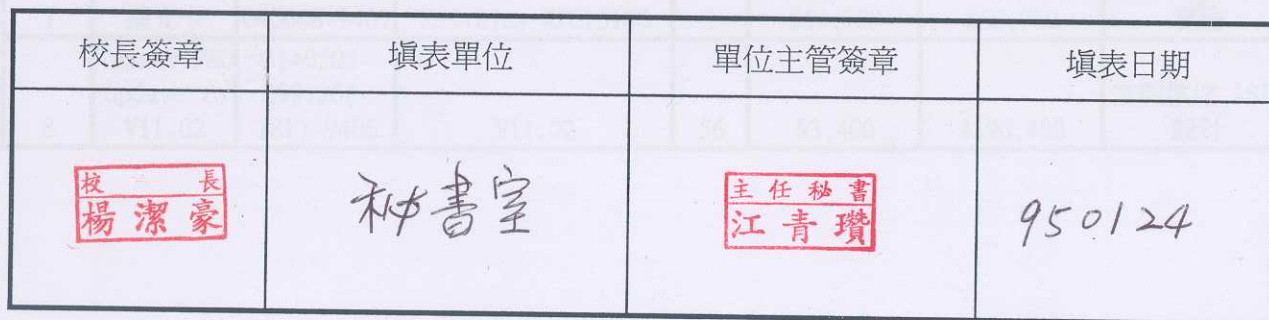 校長簽章 填表單位 單位主管簽章 填表日期
校長
楊潔豪
秘書室
主任秘書
江青瓚
950124